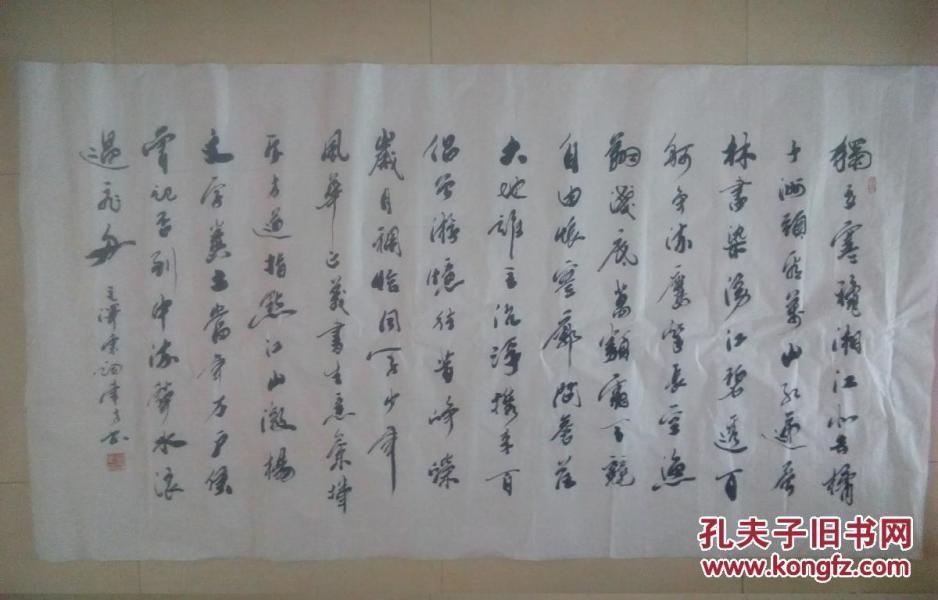 獨立寒穐湘江北去橘
子洲頭看萬山紅遍層
林盡染漫江碧透百
舸爭流鷹擊長空魚
翔淺底萬類霜天競
自由悵寥廓問蒼茫
大地誰主沉浮攜來百
侶曾遊憶往昔崢嶸
歲月稠恰同學少年
風華正茂書生意氣揮
斥方遒指點江山激揚
文字糞土當年万户侯
曾記否到中流擊水浪
遏飛舟
毛澤東詞
孔夫子旧书网
www.kongfz.com